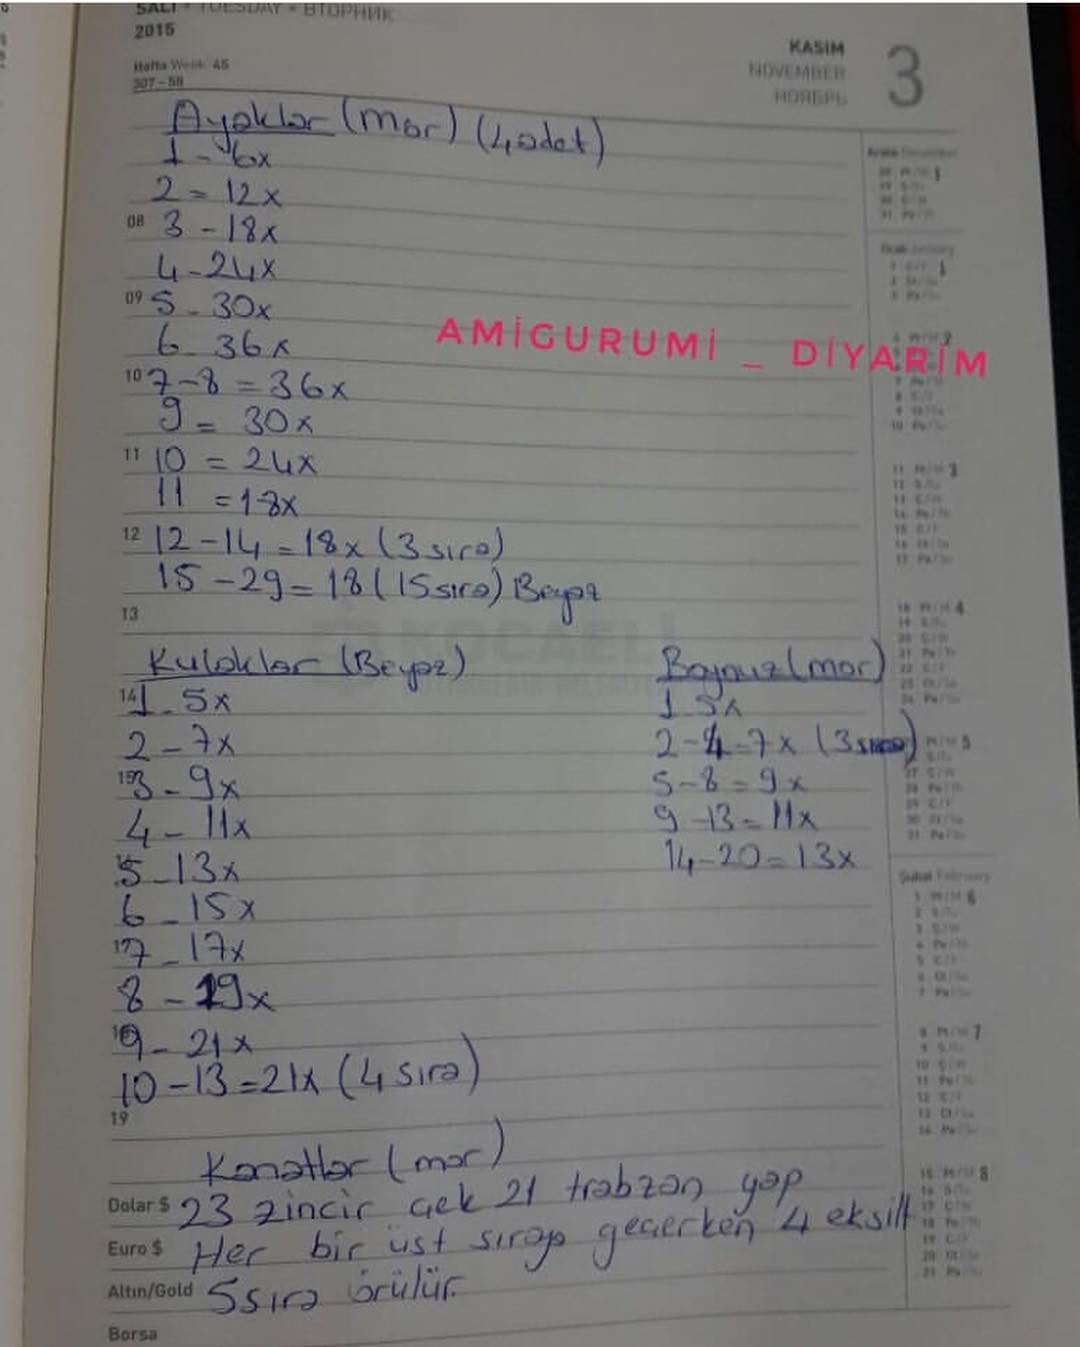 SALI • TUESDAY • ВТОРНИК
2015
Hafta Week: 45
307-58
KASIM
NOVEMBER
НОЯБРЬ
3
Ayaklar (mor) (4 adet)
1 - 6x
2 = 12x
08 3 - 18x
4 - 24x
09 5 - 30x
6 36x
AMİGURUMİ _ DİYARIM
10 7-8 = 36x
9 = 30x
11 10 = 24x
11 = 18x
12 12-14 = 18x (3 sıra)
15-29 = 18 (15 sıra) Beyaz
13
KOCAELİ
Kulaklar (Beyaz)
14 1 - 5x
2 - 7x
15 3 - 9x
4 - 11x
5 - 13x
6 - 15x
17 7 - 17x
8 - 19x
9 - 21x
10-13 = 21x (4 sıra)
19
Boynuz (mor)
1 5x
2-4 = 7x (3 sıra)
5-8 = 9x
9-13 = 11x
14-20 = 13x
Kanatlar (mor)
Dolar $ 23 zincir çek 21 trabzan yap
Euro $ Her bir üst sıraya geçerken 4 eksilt
Altın/Gold 5 sıra örülür.
Borsa
Aralık December
Ocak January
Şubat February